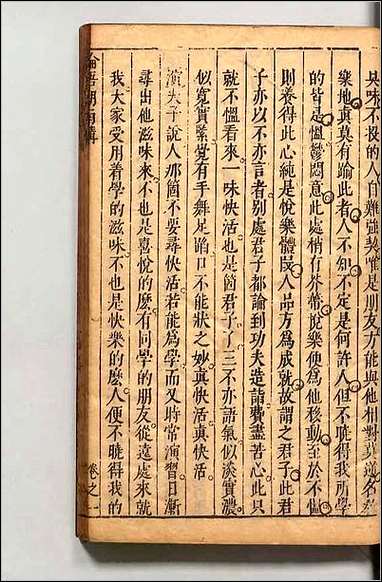 臭味不投的人自難強契惟是朋友方能與他相對莫道名教
樂地真莫有踰此者人不知不定是何許人但不曉得我所學
的皆是慍鬱悶意此處稍有芥蒂悅樂便為他移動至於不慍
則養得此心純是悅樂體段人品方為成就故謂之君子此君
子亦以不亦言者別處君子都論到功夫造詣費盡苦心此只
就不慍看來一味快活也是箇君子了三不亦語氣似淡實濃
似寬實緊覺有手舞足蹈口不能狀之妙真快活真快活
演夫子說人那箇不要尋快活若能為學而又時常演習日漸
尋出他滋味來不也是喜悅的麼有同學的朋友從遠處來就
我大家受用着學的滋味不也是快樂的麼人便不曉得我的
論語
卷之一